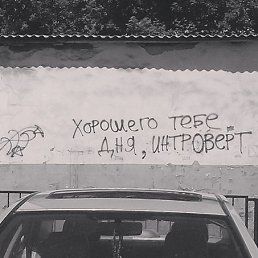 Хорошего тебе
дня, интроверт